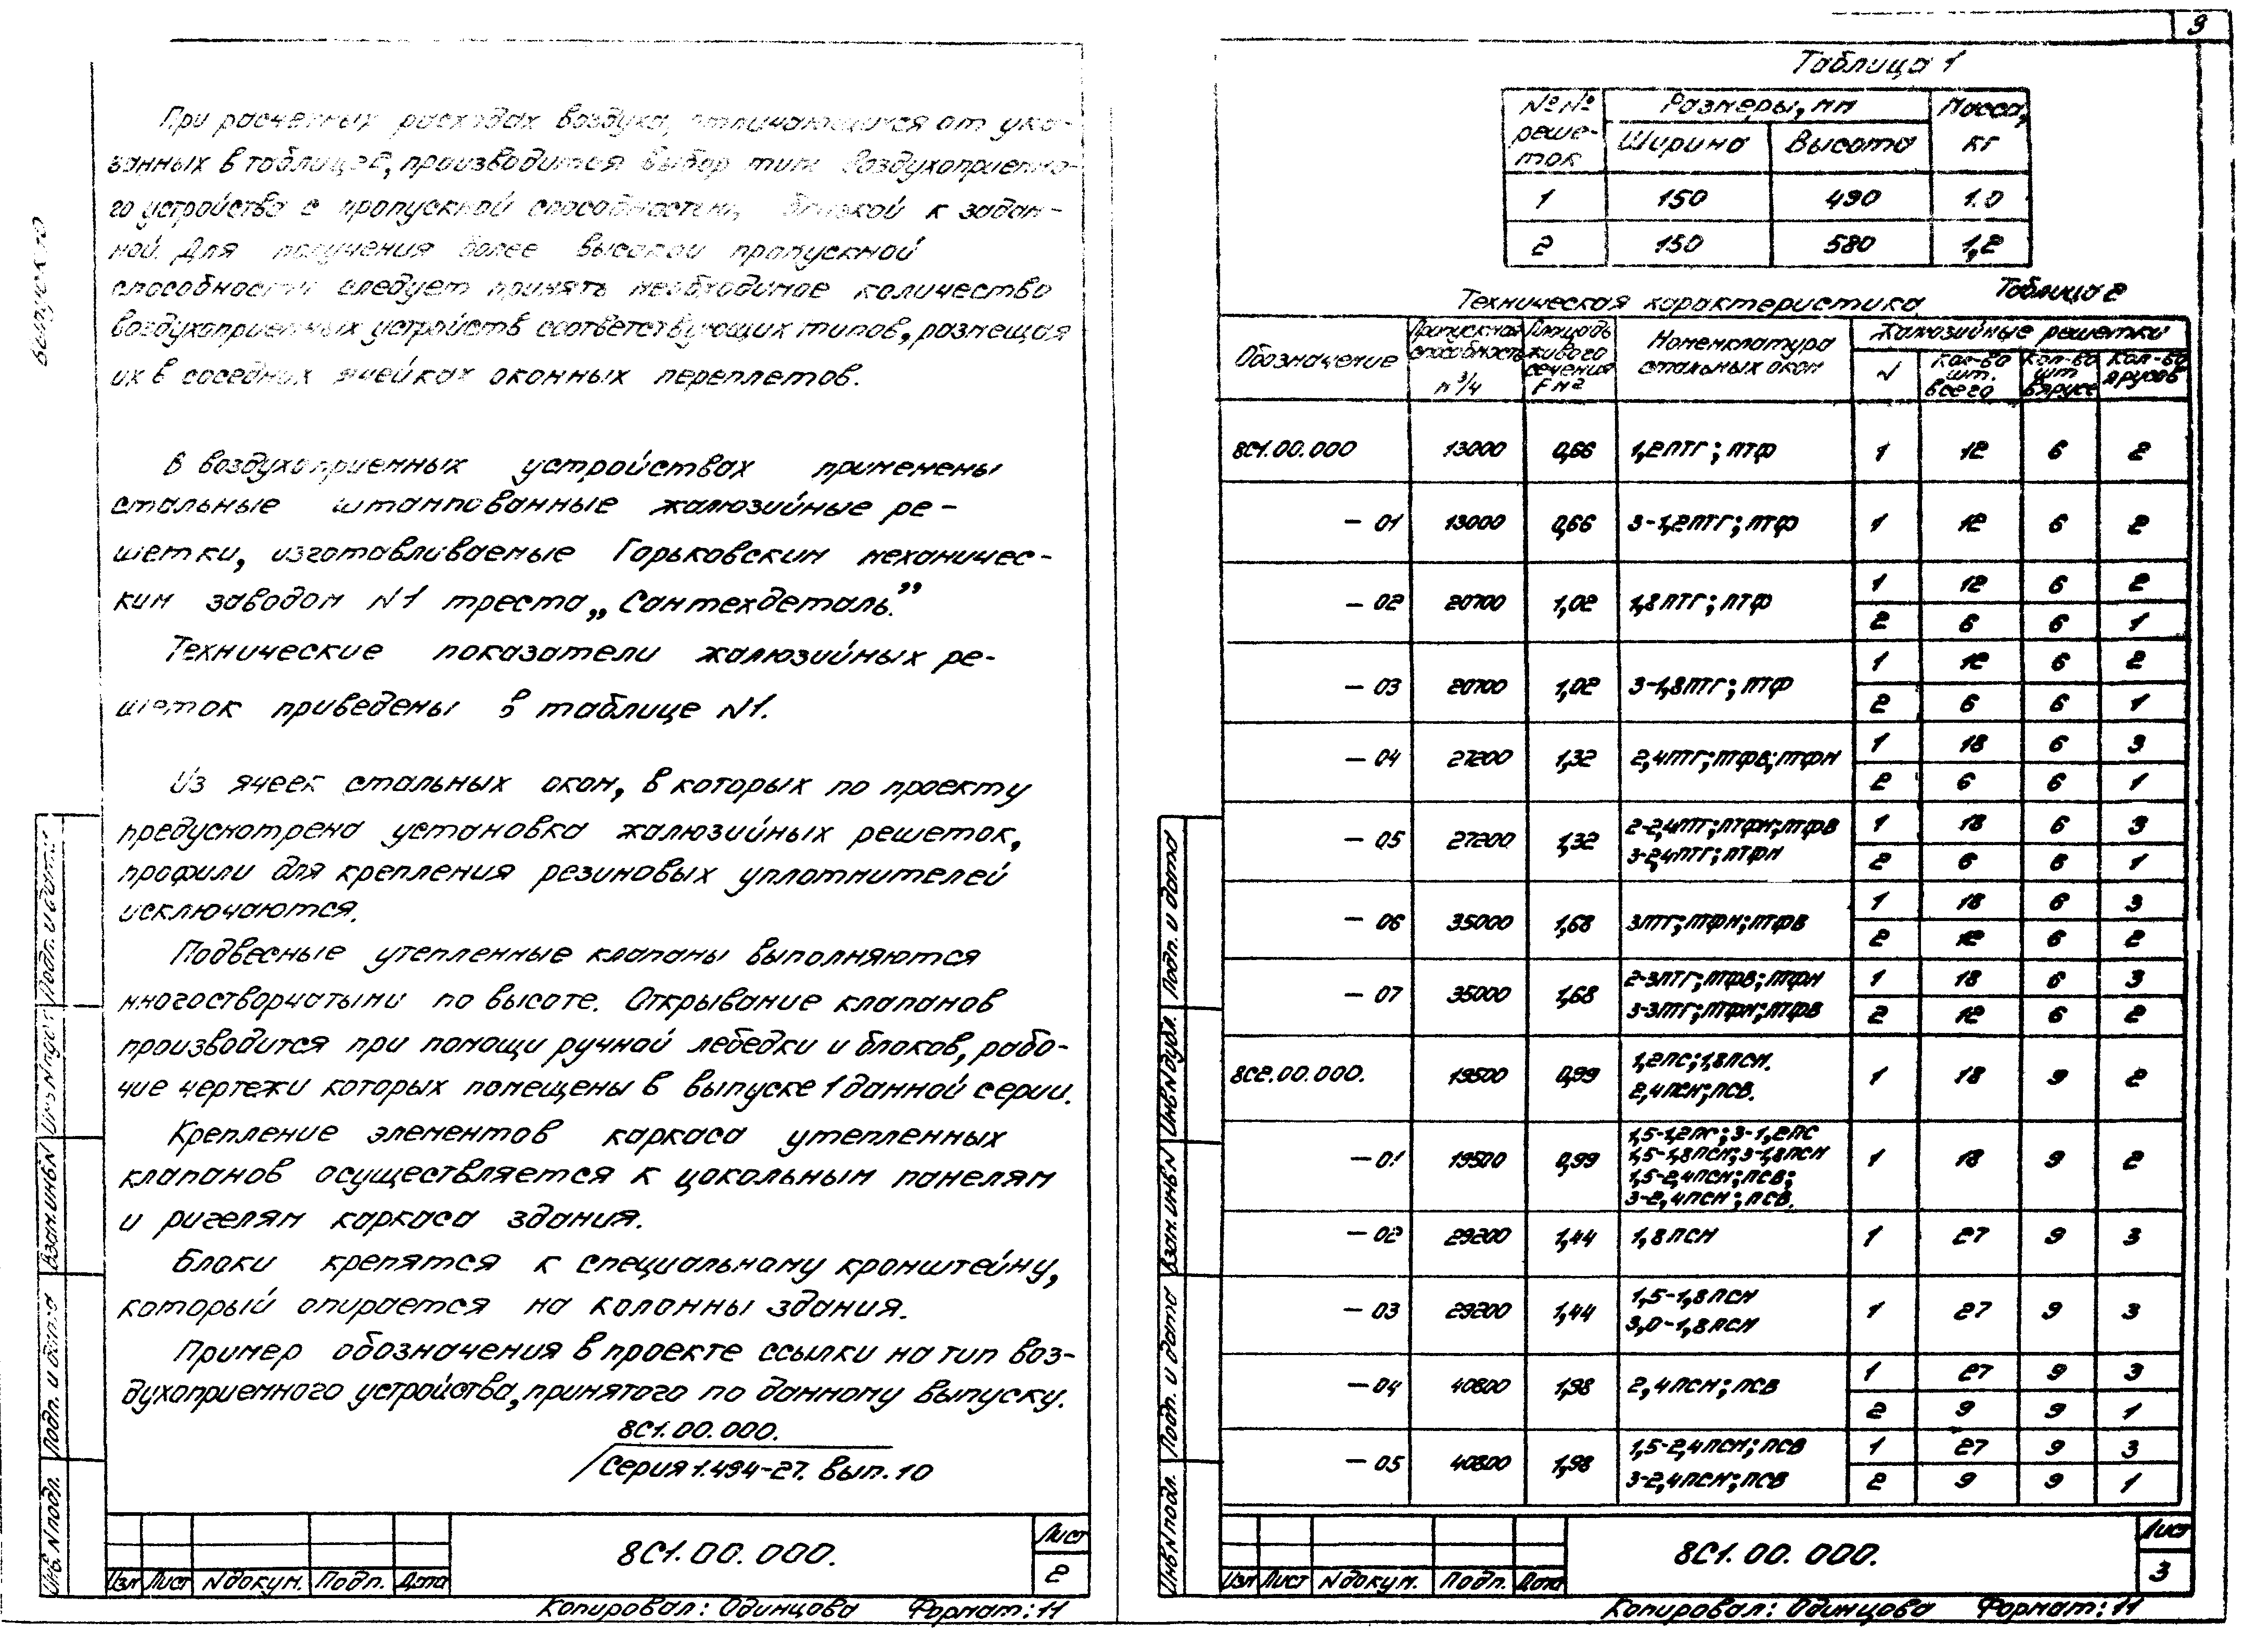 При расчетных расходах воздуха, отличающихся от ука-
занных в таблице 2, производится выбор типа воздухоприемно-
го устройства с пропускной способностью, близкой к задан-
ной. Для получения более высокой пропускной
способности следует принять необходимое количество
воздухоприемных устройств соответствующих типов, размещая
их в соседних ячейках оконных переплетов.
В воздухоприемных устройствах применены
стальные штампованные жалюзийные ре-
шетки, изготавливаемые Горьковским механичес-
ким заводом N1 треста „Сантехдеталь."
Технические показатели жалюзийных ре-
шеток приведены в таблице N1.
Из ячеек стальных окон, в которых по проекту
предусмотрена установка жалюзийных решеток,
профили для крепления резиновых уплотнителей
исключаются.
Подвесные утепленные клапаны выполняются
многостворчатыми по высоте. Открывание клапанов
производится при помощи ручной лебедки и блоков, рабо-
чие чертежи которых помещены в выпуске 1 данной серии.
Крепление элементов каркаса утепленных
клапанов осуществляется к цокольным панелям
и ригелям каркаса здания.
Блоки крепятся к специальному кронштейну,
который опирается на колонны здания.
Пример обозначения в проекте ссылки на тип воз-
духоприемного устройства, принятого по данному выпуску.
8С1.00.000.
Серия 1.494-27. вып. 10
выпуск 10
Инв. N подл. Подп. и дата Взам. инв. N Подп. и дата
Изм Лист N докум. Подп. Дата
8С1.00.000.
Лист
2
Копировал: Одинцова Формат: 11
9
Таблица 1
№№ реше-ток Размеры, мм Масса, кг
Ширина Высота
1 150 490 1.0
2 150 580 1,2
Таблица 2
Техническая характеристика
Обозначение Пропускная способность м³/ч Площадь живого сечения F м2 Номенклатура стальных окон Жалюзийные решетки
N Кол-во шт. всего Кол-во шт в ярусе Кол-во ярусов
8С1.00.000 13000 0,66 1,2ПТГ; ПТФ 1 12 6 2
- 01 13000 0,66 3-1,2ПТГ; ПТФ 1 12 6 2
- 02 20700 1,02 1,8ПТГ; ПТФ 1 12 6 2
2 6 6 1
- 03 20700 1,02 3-1,8ПТГ; ПТФ 1 12 6 2
2 6 6 1
- 04 27200 1,32 2,4ПТГ; ПТФВ; ПТФН 1 18 6 3
2 6 6 1
- 05 27200 1,32 2-2,4ПТГ; ПТФН; ПТФВ 1 18 6 3
3-2,4ПТГ; ПТФН 2 6 6 1
- 06 35000 1,68 3ПТГ; ПТФН; ПТФВ 1 18 6 3
2 12 6 2
- 07 35000 1,68 2-3ПТГ; ПТФВ; ПТФН 1 18 6 3
3-3ПТГ; ПТФН; ПТФВ 2 12 6 2
8С2.00.000. 19500 0,99 1,2ПС; 1,8ПСН. 1 18 9 2
2,4ПСН; ПСВ.
- 01 19500 0,99 1,5-1,2ПС; 3-1,2ПС 1 18 9 2
1,5-1,8ПСН; 3-1,8ПСН
1,5-2,4ПСН; ПСВ;
3-2,4ПСН; ПСВ.
- 02 29200 1,44 1,8ПСН 1 27 9 3
- 03 29200 1,44 1,5-1,8ПСН 1 27 9 3
3,0-1,8ПСН
- 04 40800 1,98 2,4ПСН; ПСВ 1 27 9 3
2 9 9 1
- 05 40800 1,98 1,5-2,4ПСН; ПСВ 1 27 9 3
3-2,4ПСН; ПСВ 2 9 9 1
Инв N подл. Подп. и дата Взам. инв N Инв N дубл. Подп. и дата
Изм Лист N докум. Подп. Дата
8С1.00.000.
Лист
3
Копировал: Одинцова Формат: 11